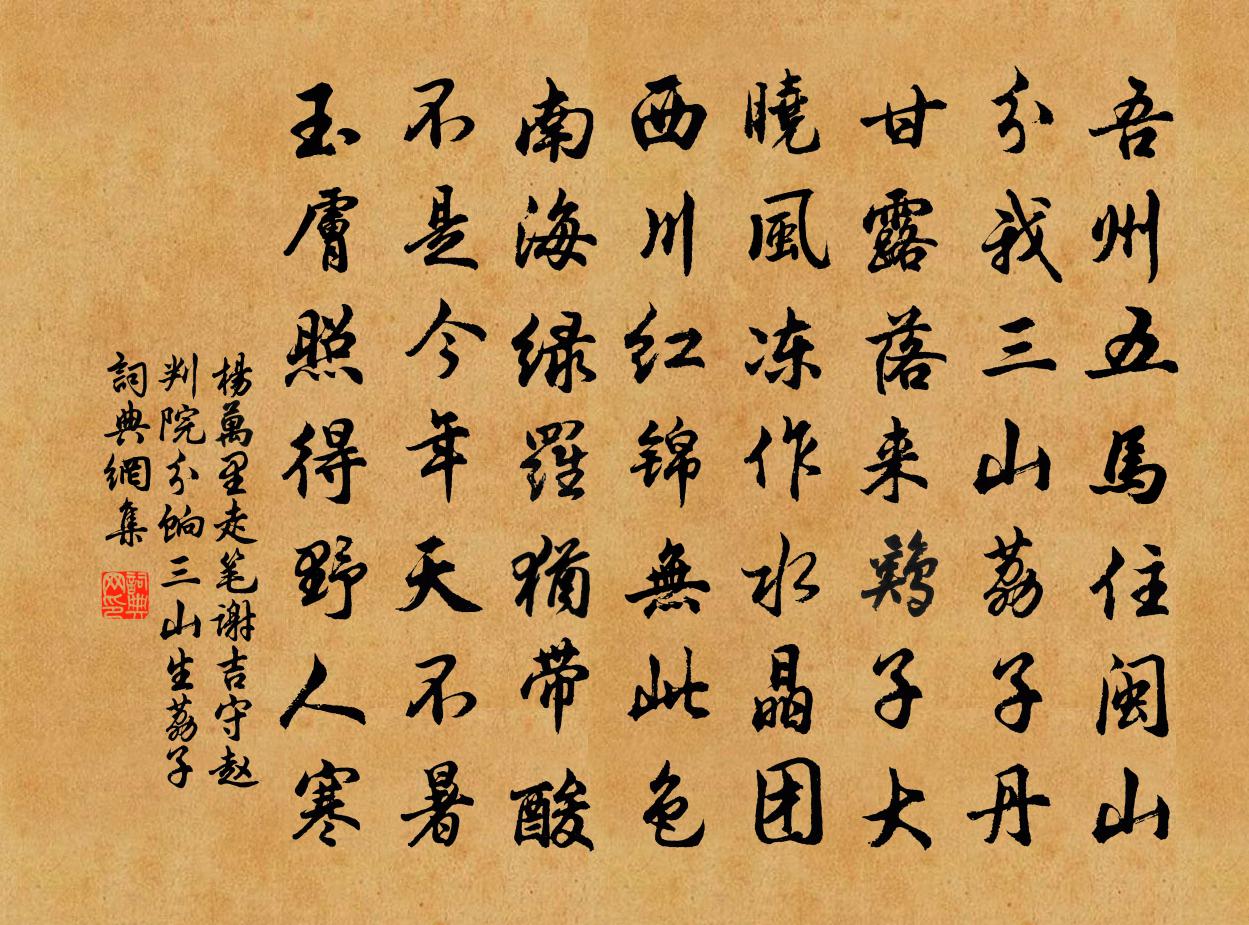 吾州五馬住閩山
分我三山荔子丹
甘露落来鶏子大
曉風冻作水晶团
西川红锦無此色
南海绿羅猶带酸
不是今年天不暑
玉膚照得野人寒
楊萬里走笔谢吉守赵
判院分餉三山生荔子
詞典網集
詞典网印